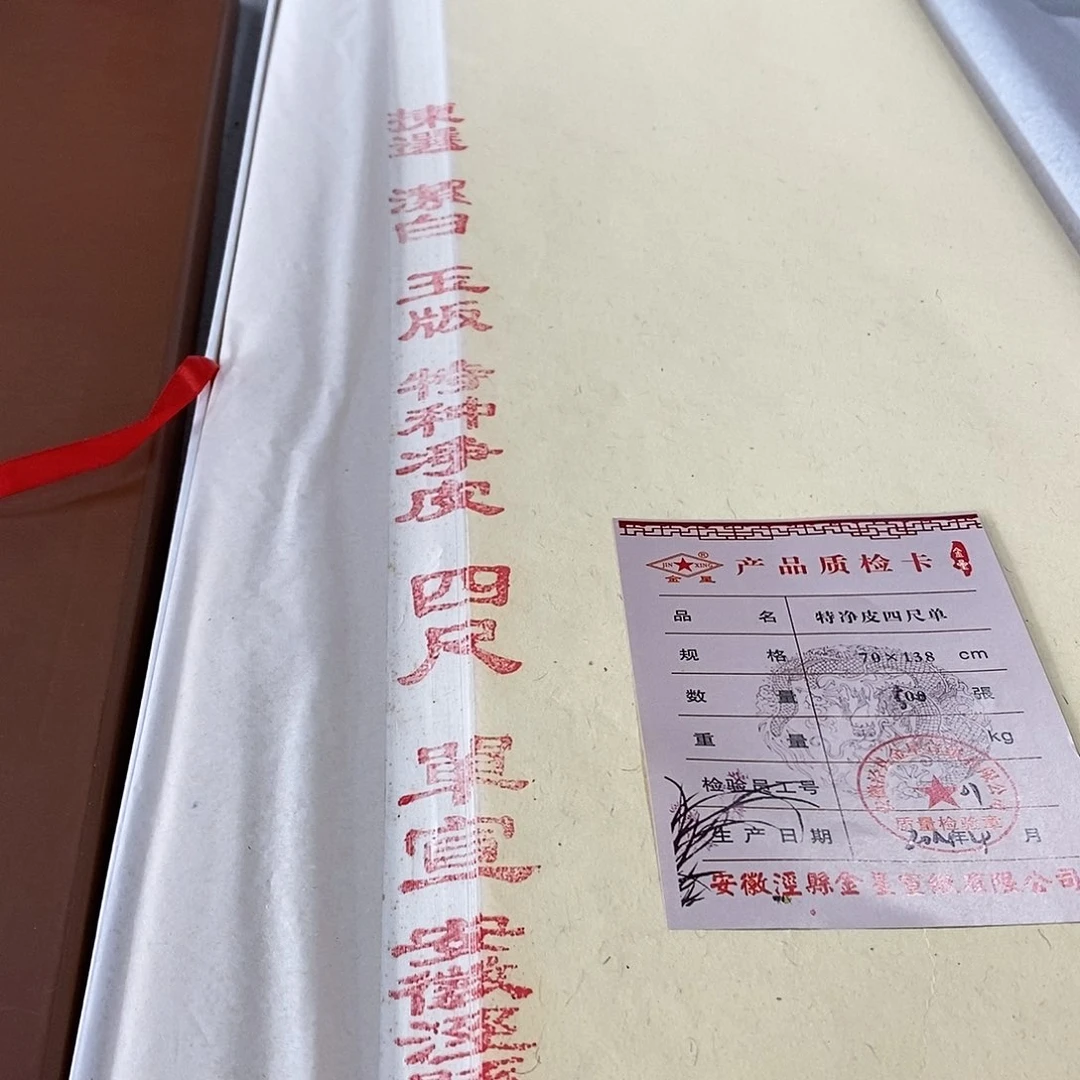 揀選
潔白
玉版
特种净皮
四尺
單宣
安徽涇
JIN XING ®
金星
产品质检卡
品名 特净皮四尺单
规格 70×138 cm
数量 100 張
重量 kg
检验员工号 01
质量检验章
生产日期 年4月
安徽涇縣金星宣紙有限公司